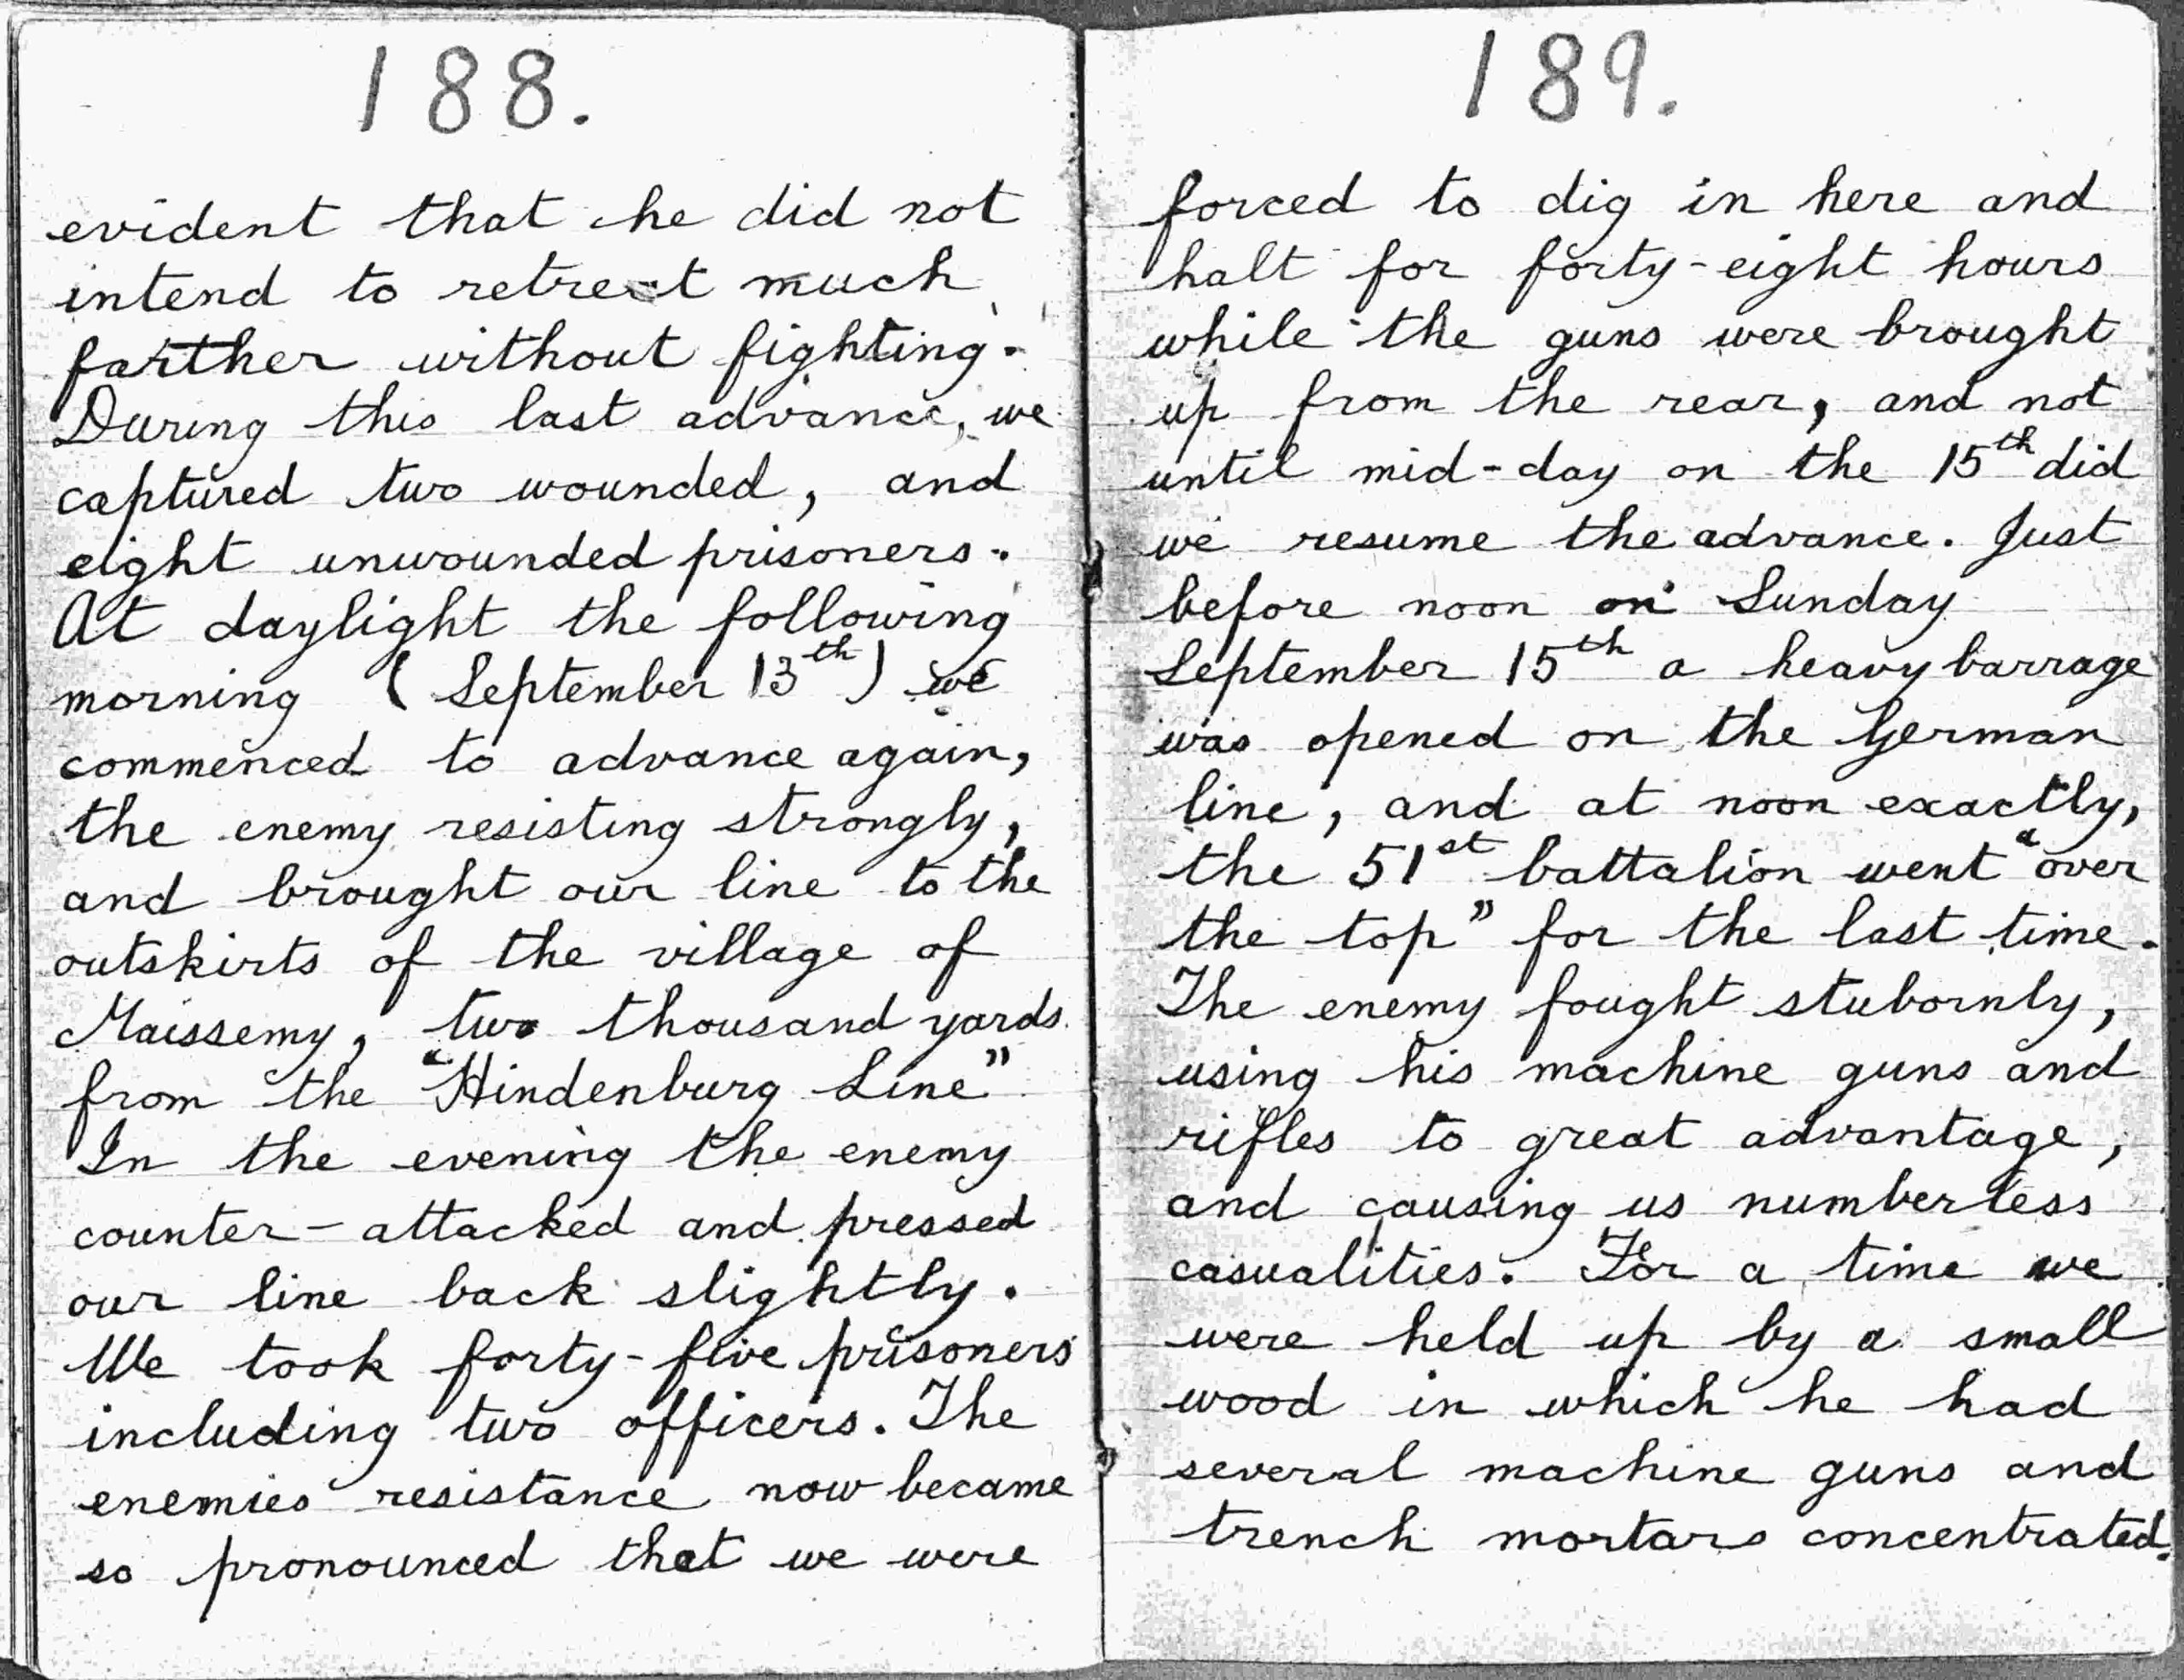 188.
evident that he did not
intend to retreat much
farther without fighting.
During this last advance, we
captured two wounded, and
eight unwounded prisoners.
At daylight the following
morning (September 13th) we
commenced to advance again,
the enemy resisting strongly,
and brought our line to the
outskirts of the village of
Maissemy, two thousand yards
from the "Hindenburg Line"
In the evening the enemy
counter-attacked and pressed
our line back slightly.
We took forty-five prisoners
including two officers. The
enemies resistance now became
so pronounced that we were
189.
forced to dig in here and
halt for forty-eight hours
while the guns were brought
up from the rear, and not
until mid-day on the 15th did
we resume the advance. Just
before noon on Sunday
September 15th a heavy barrage
was opened on the German
line, and at noon exactly,
the 51st battalion went "over
the top" for the last time.
The enemy fought stubornly,
using his machine guns and
rifles to great advantage,
and causing us numberless
casualities. For a time we
were held up by a small
wood in which he had
several machine guns and
trench mortars concentrated.